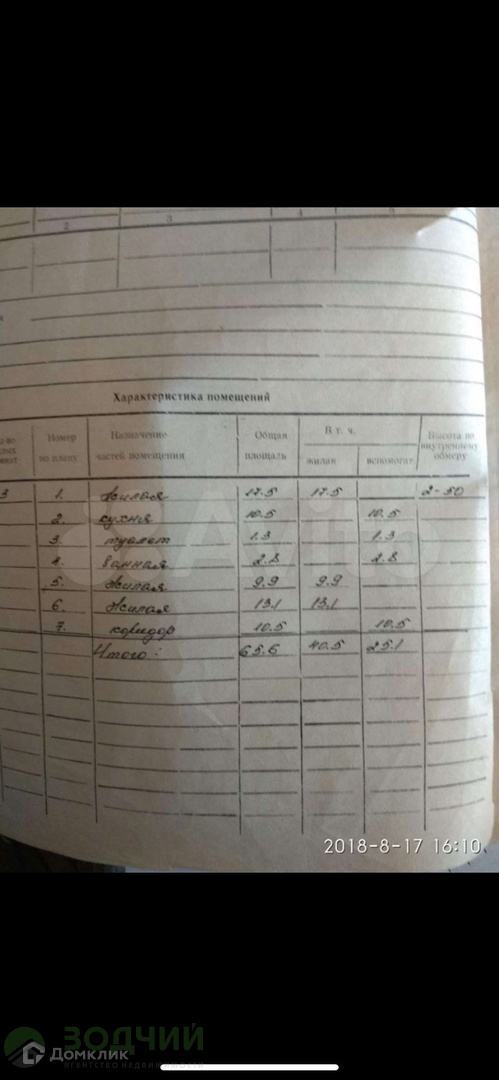 2 3 4 5
Характеристика помещений
Номер по плану Назначение частей помещения Общая площадь В т. ч. жилая вспомогат Высота по внутреннему обмеру
3 1. жилая 17.5 17.5 2-50
2. кухня 10.5 10.5
3. туалет 1.3 1.3
4. ванная 2.8 2.8
5. жилая 9.9 9.9
6. жилая 13,1 13,1
7. коридор 10.5 10.5
Итого: 65.6 40.5 25.1
Avito
2018-8-17 16:10
ЗОДЧИЙ
Домклик
агентство недвижимости